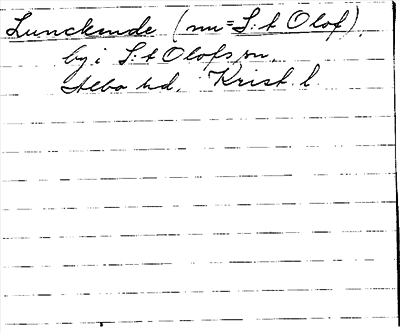 Lunckende (nu = S:t Olof),
by i S:t Olofs sn,
Albo hd, Krist. l.